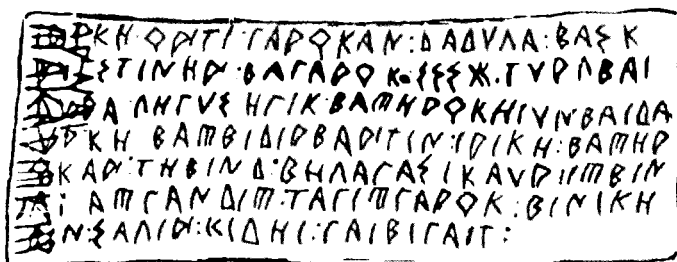 ΙΡ́ΚΗ·ΟΡ́ΤΙ·ΓΑΡΟΚΑΝ:ΔΑΔΥΛΑ:ΒΑΣΚ
ΒΥΙΣΤΙΝΗΡ́:ΒΑΓΑΡΟΚ:ΣΣΣΧ·ΤΥΡΛΒΑΙ
ΛΥΡΑ·ΛΗΓΥΣΗΓΙΚ·ΒΑͲΗΡΟΚΗΙΥΝΒΑΙΔΑ
ΥΡΚΗ·ΒΑͲΒΙΔΙΡΒΑΡ́ΤΙΝ:ΙΡ́ΙΚΗ:ΒΑͲΗΡ
ΟΚΑΡ́:ΤΗΒΙΝΔ:ΒΗΛΑΓΑΣΙΚΑΥΡ:ΙͲΒΙΝ
ΑΙ:ΑͲΓΑΝΔΙͲ:ΤΑΓΙͲΓΑΡΟΚ:ΒΙΝΙΚΗ
ΒΙΝ:ΣΑΛΙΡ́:ΚΙΔΗΙ:ΓΑΙΒΙΓΑΙΤ: